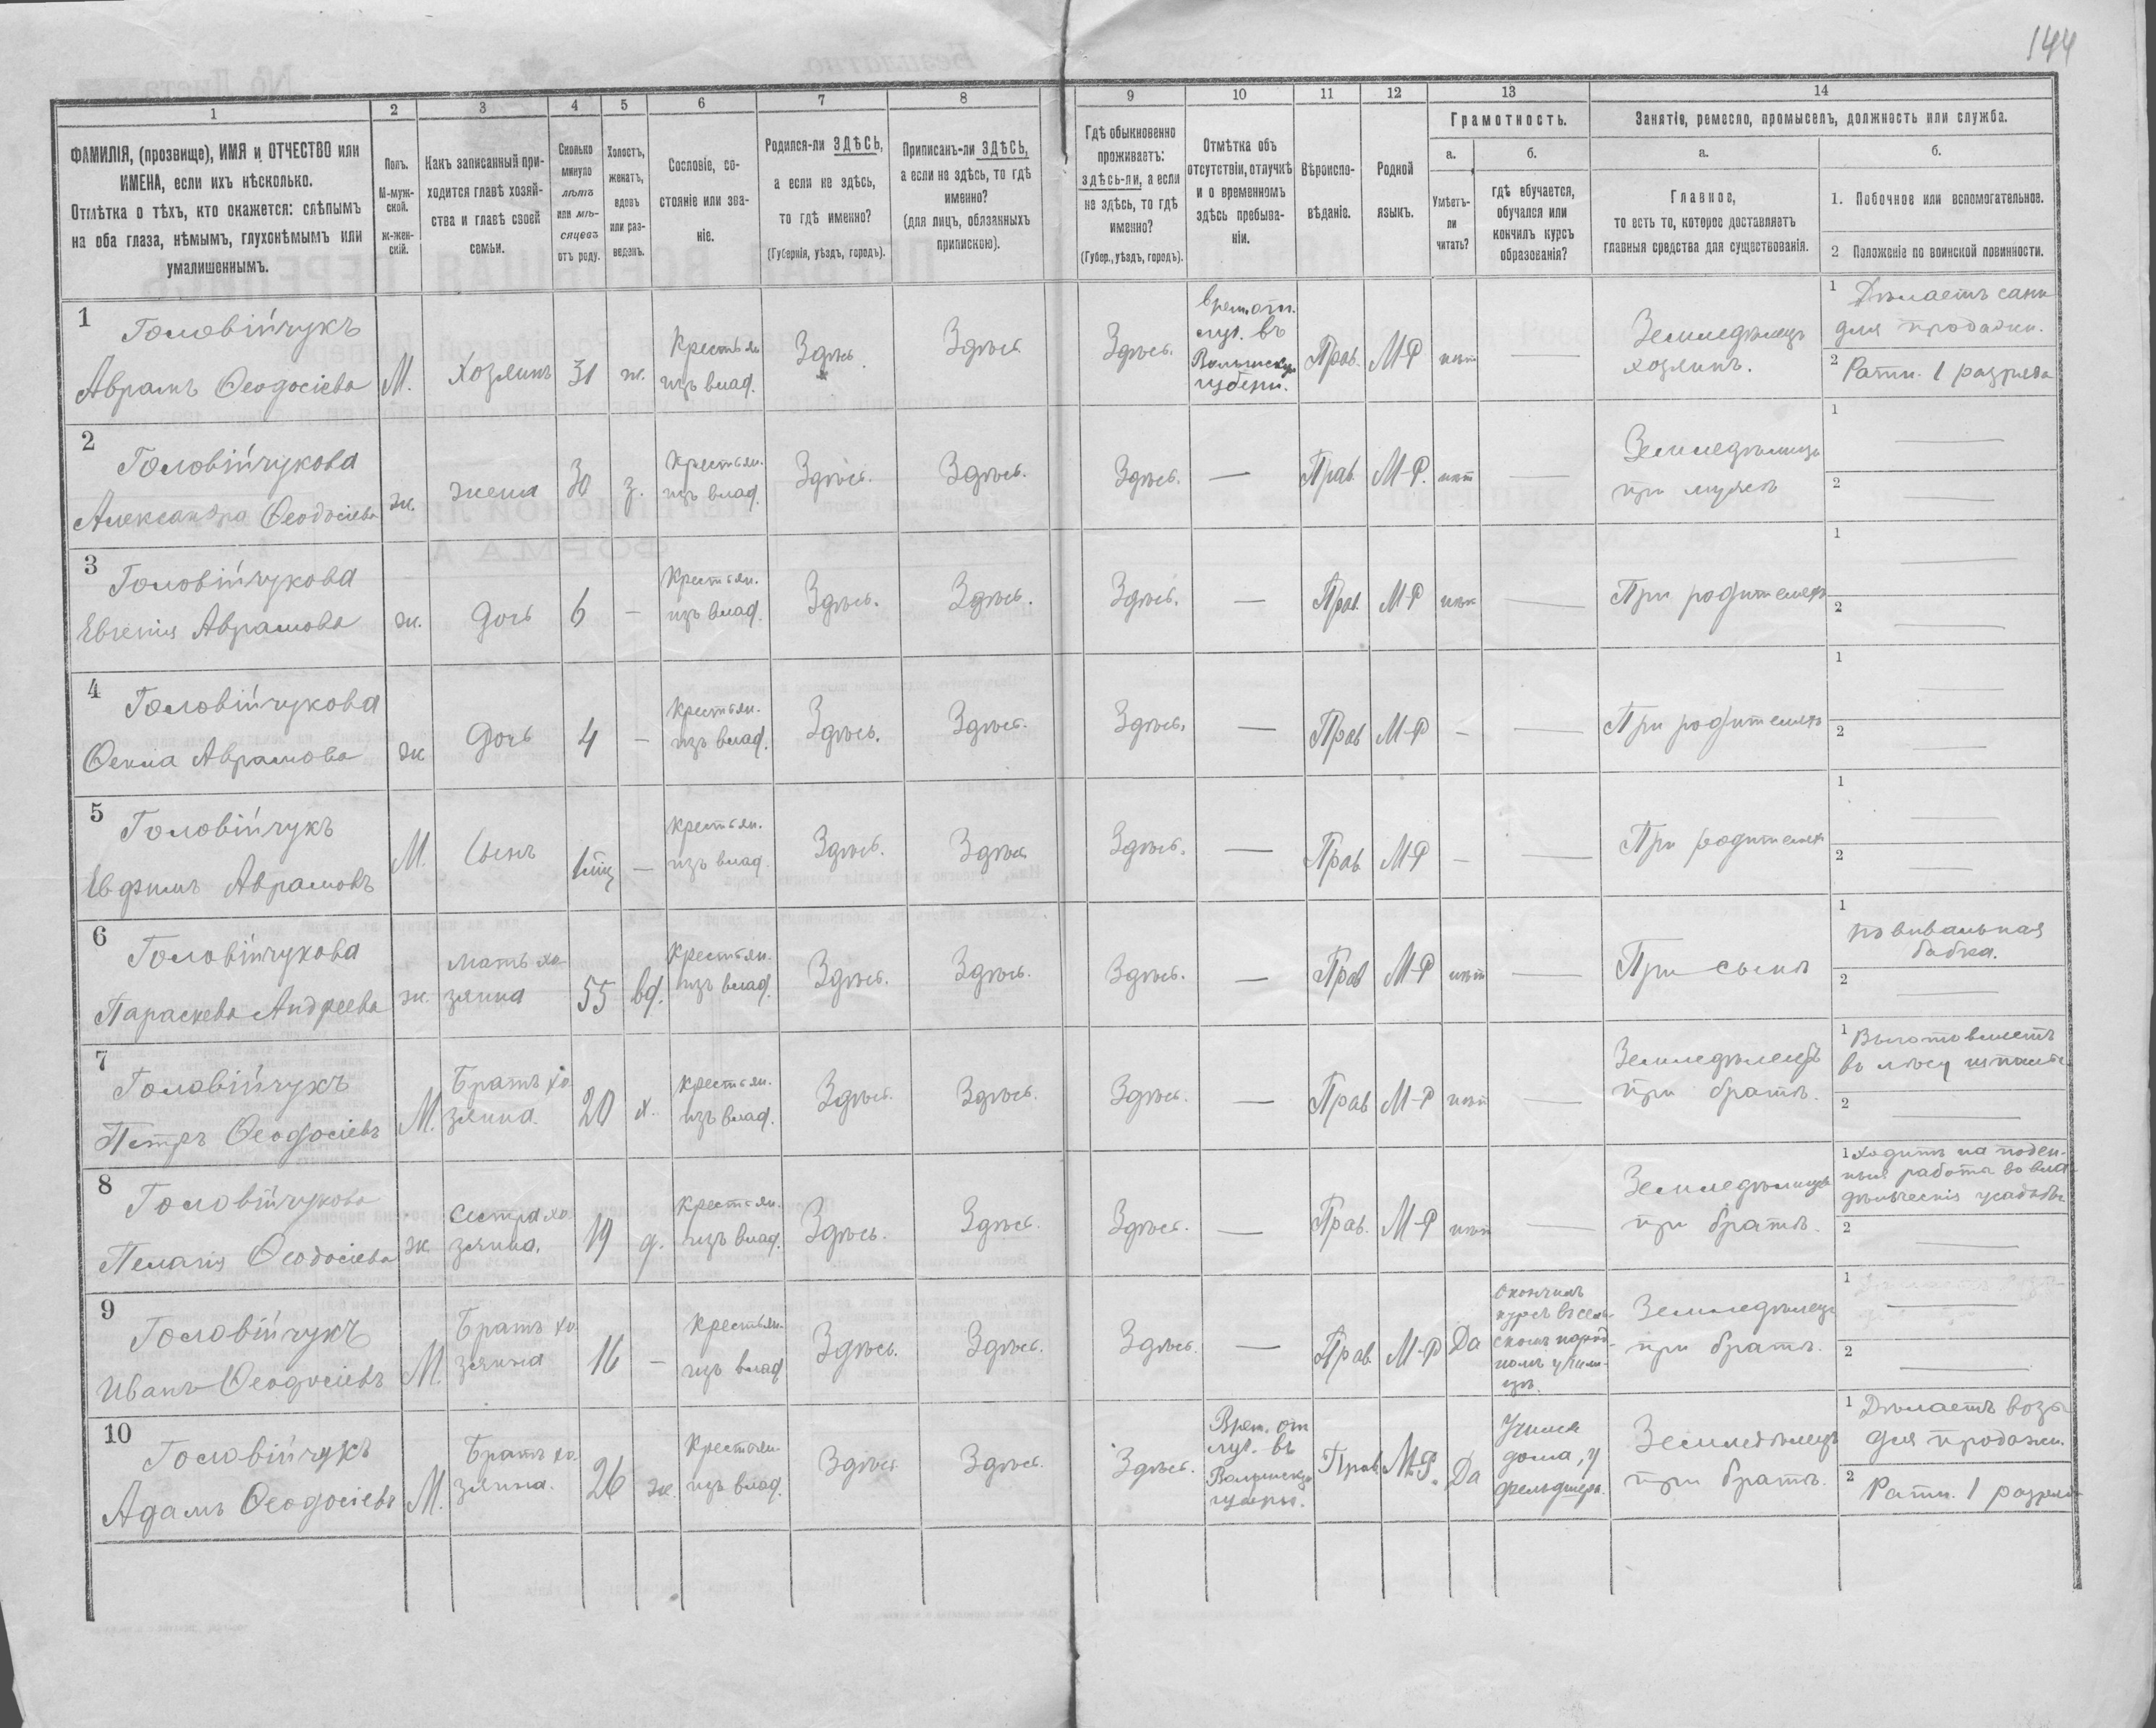 144
1
2
3
4
5
6
7
8
9
10
11
12
13
14
ФАМИЛІЯ, (прозвище), ИМЯ и ОТЧЕСТВО или
ИМЕНА, если ихъ нѣсколько.
Отмѣтка о тѣхъ, кто окажется: слѣпымъ
на оба глаза, нѣмымъ, глухонѣмымъ или
умалишеннымъ.
Полъ.
М-муж-
ской.
Ж-жен-
скій.
Какъ записанный при-
ходится главѣ хозяй-
ства и главѣ своей
семьи.
Сколько
минуло
лѣтъ
или мѣ-
сяцевъ
отъ роду.
Холостъ,
женатъ,
вдовъ
или раз-
веденъ.
Сословіе, со-
стояніе или зва-
ніе.
Родился-ли ЗДѢСЬ,
а если не здѣсь,
то гдѣ именно?
(Губернія, уѣздъ, городъ).
Приписанъ-ли ЗДѢСЬ,
а если не здѣсь, то гдѣ
именно?
(для лицъ, обязанныхъ
припискою).
Гдѣ обыкновенно
проживаетъ:
здѣсь-ли, а если
не здѣсь, то гдѣ
именно?
(Губер., уѣздъ, городъ).
Отмѣтка объ
отсутствіи, отлучкѣ
и о временномъ
здѣсь пребыва-
ніи.
Вѣроиспо-
вѣданіе.
Родной
языкъ.
Грамотность.
а.
Умѣетъ-
ли
читать?
б.
гдѣ обучается,
обучался или
кончилъ курсъ
образованія?
Занятіе, ремесло, промыселъ, должность или служба.
а.
Главное,
то есть то, которое доставляетъ
главныя средства для существованія.
б.
1. Побочное или вспомогательное.
2 Положеніе по воинской повинности.
1
Головійчукъ
Аврамъ Ѳеодосіевъ
М.
Хозяинъ
31
ж.
Крестьян.
изъ влад.
Здѣсь.
Здѣсь
Здѣсь.
Врем. от.
луч. въ
Волынскую
губерн.
Прав.
М-Р
нѣт
—
Земледѣлецъ
хозяинъ.
1 Дѣлаетъ сани
для продажи.
2 Ратн. 1 разряда
2
Головійчукова
Александра Ѳеодосіева
ж.
жена
30
з.
Крестьян.
изъ влад.
Здѣсь.
Здѣсь.
Здѣсь.
—
Прав.
М-Р.
нѣт
—
Земледѣлица
при мужѣ
1 —
2 —
3
Головійчукова
Евгенія Аврамова
ж.
дочь
6
—
Крестьян.
изъ влад.
Здѣсь.
Здѣсь.
Здѣсь.
—
Прав.
М-Р
—
При родителяхъ
1 —
2 —
4
Головійчукова
Ѳекла Аврамова
ж
дочь
4
—
Крестьян.
изъ влад.
Здѣсь.
Здѣсь.
Здѣсь.
—
Прав
М-Р
—
—
При родителяхъ
1 —
2 —
5
Головійчукъ
Евфимъ Аврамовъ
М.
Сынъ
—
Крестьян.
изъ влад.
Здѣсь.
Здѣсь
Здѣсь.
—
Прав
М-Р
—
—
При родителяхъ
1 —
2 —
6
Головійчукова
Параскева Андреева
ж.
мать хо-
зяина
55
вд.
Крестьян.
изъ влад.
Здѣсь.
Здѣсь.
Здѣсь.
—
Прав
М-Р
нѣт
—
При сынѣ
1
повивальная
бабка.
2 —
7
Головійчукъ
Петръ Ѳеодосіевъ
М.
Братъ хо-
зяина.
20
х.
Крестьян.
изъ влад.
Здѣсь.
Здѣсь.
Здѣсь.
—
Прав
М-Р
нѣт
—
Земледѣлецъ
при братѣ.
1
въ лѣсу
2 —
8
Головійчукова
Пелагія Ѳеодосіева
ж
Сестра хо-
зяина.
19
д.
Крестьян.
изъ влад.
Здѣсь.
Здѣсь.
Здѣсь.
—
Прав.
М-Р
нѣт
—
Земледѣлица
при братѣ.
1 Ходитъ на поден-
ныя работы во вла-
дѣльческія усадьбы
2 —
9
Головійчукъ
Иванъ Ѳеодосіевъ
М.
Братъ хо-
зяина
16
—
Крестьян.
изъ влад
Здѣсь.
Здѣсь.
Здѣсь.
—
Прав.
М-Р
Да
Окончилъ
курсъ въ сель-
скомъ народ-
номъ учили-
щѣ.
Земледѣлецъ
при братѣ.
1 —
2 —
10
Головійчукъ
Адамъ Ѳеодосіевъ
М.
Братъ хо-
зяина.
26
ж.
Крестьян.
изъ влад.
Здѣсь
Здѣсь.
Здѣсь.
Врем. от
луч. въ
Волынскую
губерн.
Прав.
М-Р.
Да
Учился
дома, у
фельдшера.
Земледѣлецъ
при братѣ.
1 Дѣлаетъ возы
для продажи.
2 Ратн. 1 разряда